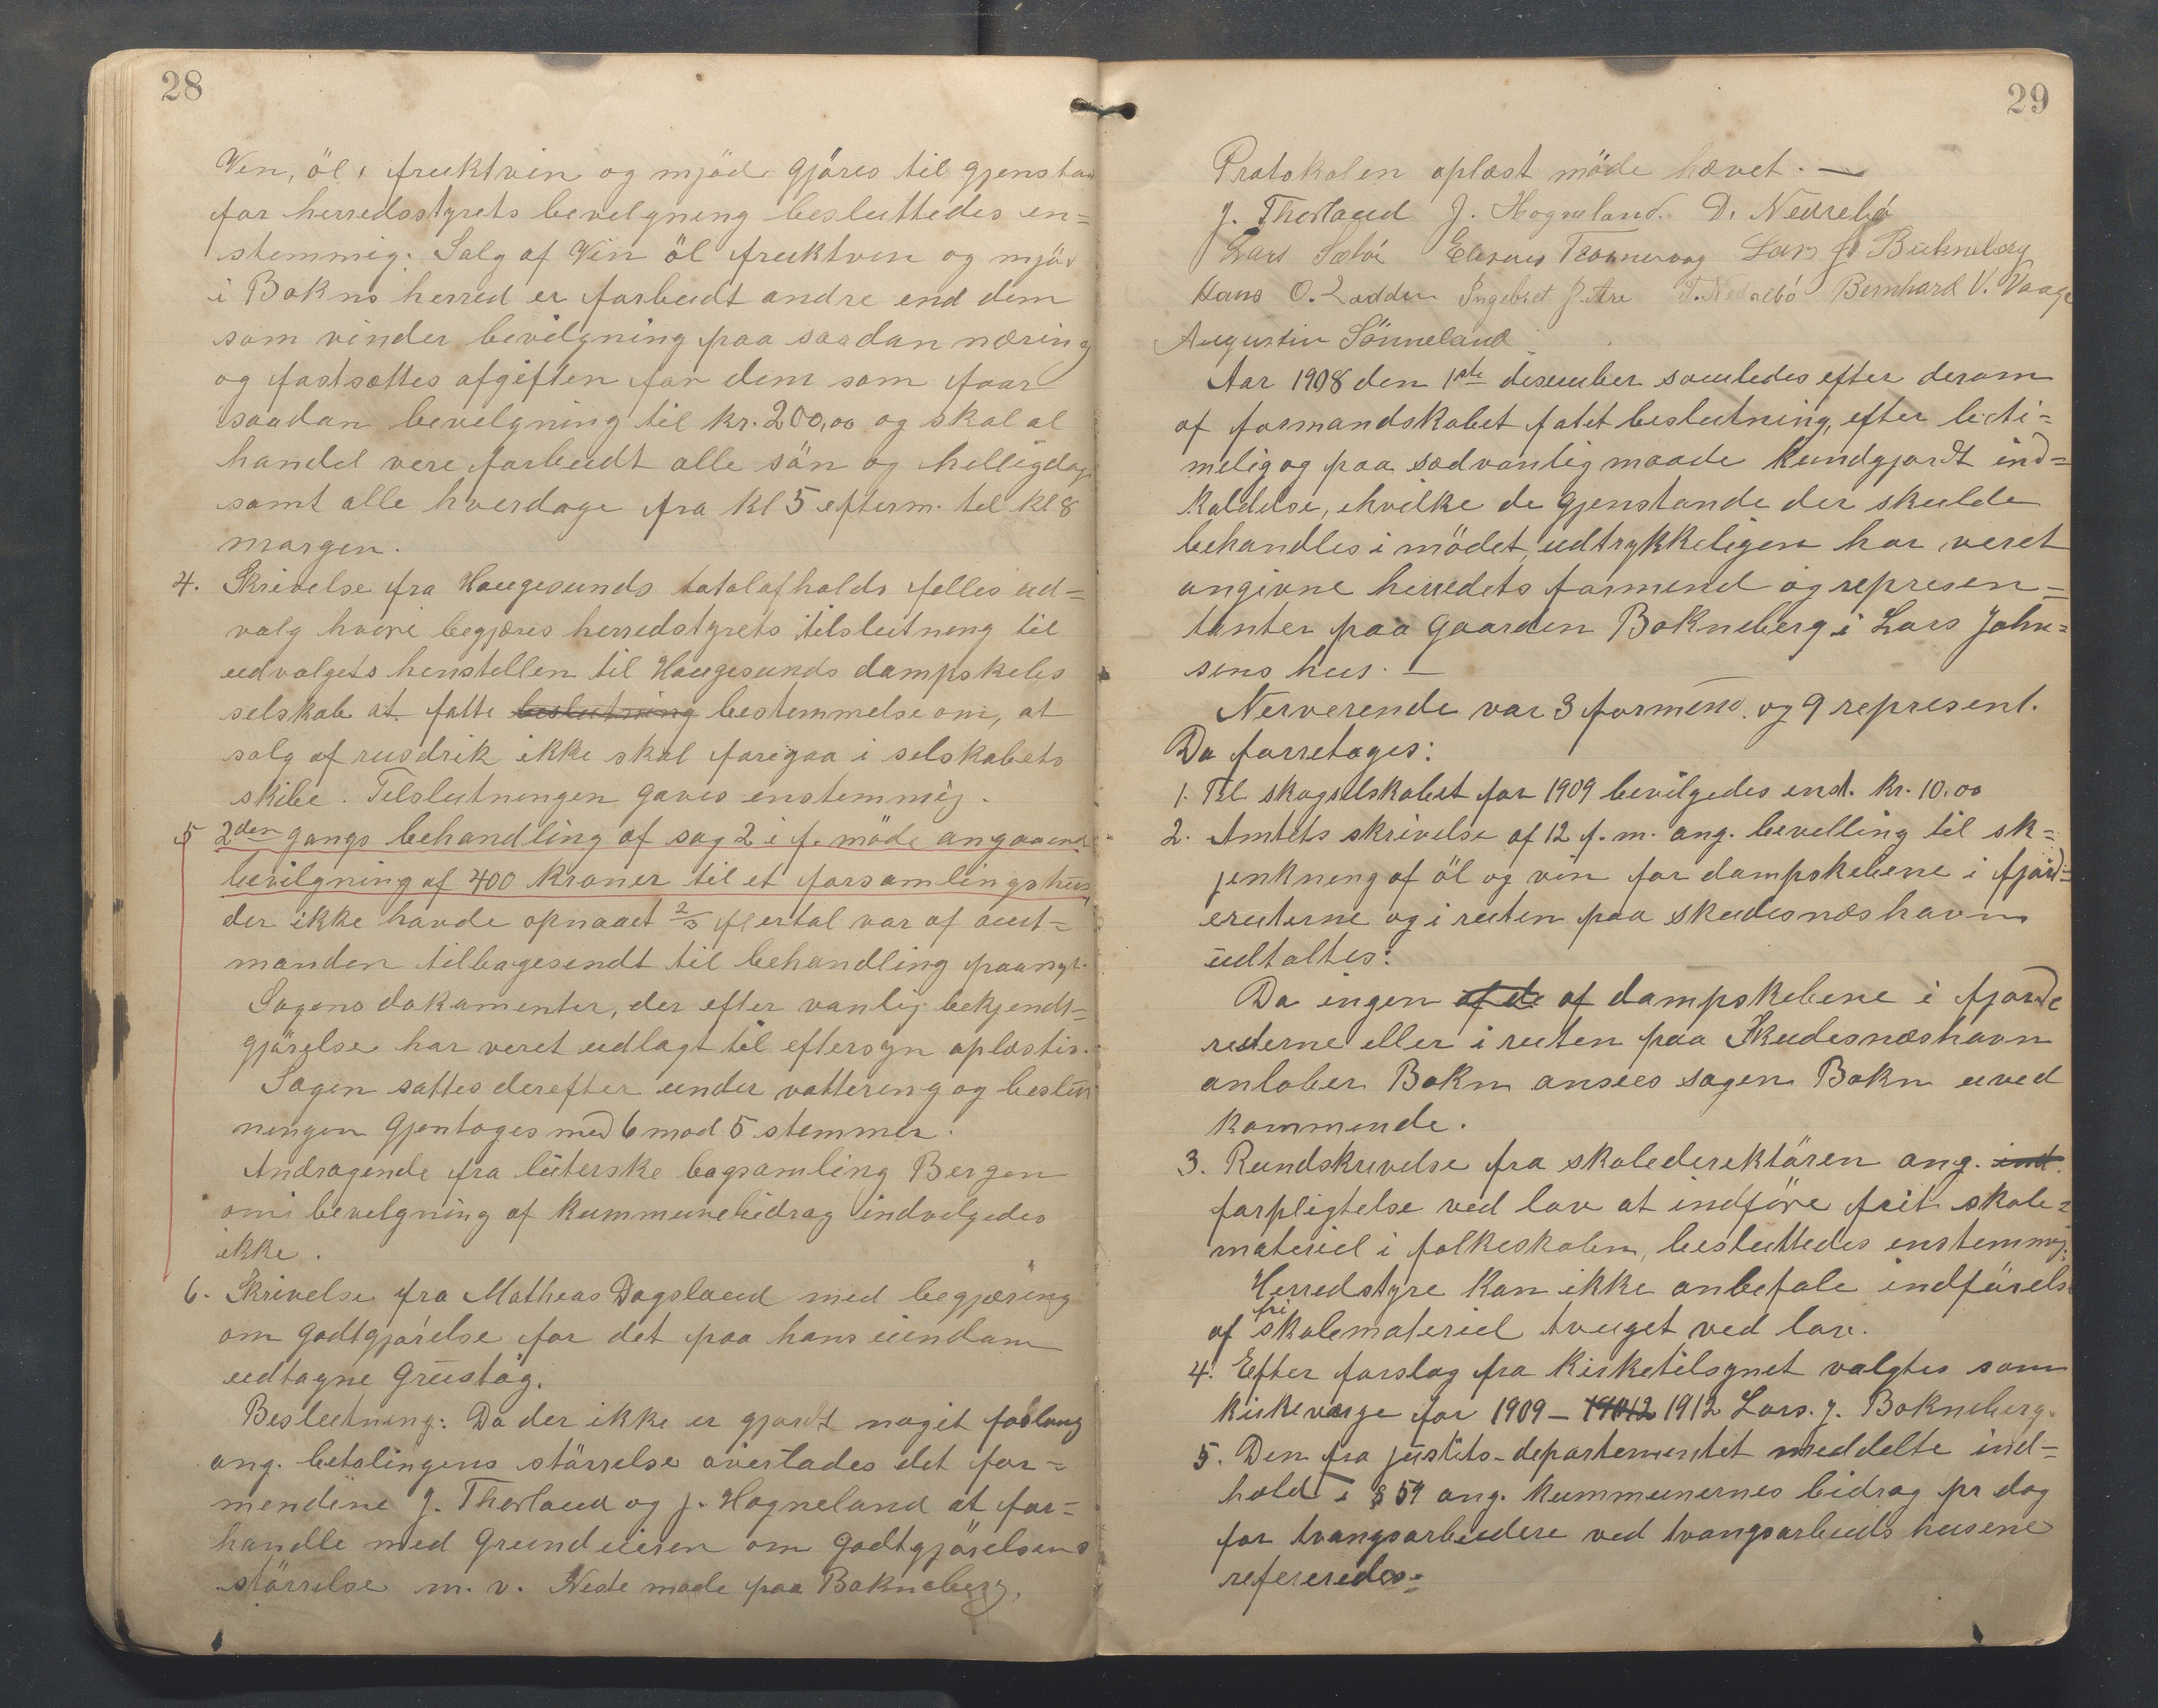 28
Vin, öl, fruktvin og mjöd gjöres til gjenstan
for herredsstyrets bevelgning besluttedes en=
stemmig. Salg af Vin öl fruktvin og mjöd
i Bokns herred er forbudt andre end dem
som vinder bevilgning paa saadan næring
og fastsættes afgiften for dem som faar
saadan bevelgning til kr. 200,00 og skal al
handel vere forbudt alle sön og helligdage
samt alle hverdage fra kl 5 efterm. til kl 8
morgen.
4. Skrivelse fra Haugesunds totalafholds felles ud=
valg hvori begjæres herredstyrets tilslutning til
udvalgets henstellen til Haugesunds dampskebs
selskab at fatte beslutning bestemmelse om, at
salg af rusdrik ikke skal foregaa i selskabets
skibe. Tilslutningen gaves enstemmig.
5 2den gangs behandling af sag 2 i f. möde angaaend
bevilgning af 400 kroner til et forsamlingshus
der ikke havde opnaaet 2/3 flertal var af amt=
manden tilbagesendt til behandling paanyt.
Sagens dokumenter, der efter vanlig bekjendt=
gjörelse har veret udlagt til eftersyn oplæstis.
Sagen sattes derefter under vottering og beslut
ningen gjentoges med 6 mod 5 stemmer.
Andragende fra luterske bogsamling Bergen
om bevelgning af kummunebidrag indvelgedes
ikke.
6. Skrivelse fra Matheas Dagsland med begjæring
om godtgjörelse for det paa hans eiendom
udtagne grustag.
Beslutning: Da der ikke er gjordt noget forslang
ang. betalingens störrelse överlades det for=
mendene J. Thorland og J. Hogneland at for=
handle med grundeieren om godtgjörelsens
störrelse m. v. Neste möde paa Bokneberg.
29
Protokolen oplæst möde hævet. —
J. Thorland J. Hogneland. D. Nedrebö
Lars Sæbö Elenus Trosnavaag Lars J. Bukneberg
Hans O. Lodden Ingebret J. Are T. Nedrebö Bernhard V. Vaage
Augustin Sönneland
Aar 1908 den 1ste desember samledes efter derom
af formandskabet fatet beslutning, efter beti=
melig og paa sædvanlig maade kundgjordt ind=
kaldelse, ihvilke de gjenstande der skulde
behandles i mödet udtrykkeligen har veret
angivne herredets formend og represen=
tanter paa gaarden Bokneberg i Lars John=
sens hus. —
Nerverende var 3 formend. og 9 represent.
Da forretoges:
1. Til skogselskabet for 1909 bevilgedes enst. kr. 10.00
2. Amtets skrivelse af 12 f. m. ang. bevelling til sk=
jenkning af öl og vin for dampskebene i fjord=
eruterne og i ruten paa skudesnæshavn
udtaltes:
Da ingen af de af dampskebene i fjorde
ruterne eller i ruten paa Skudesnæshavn
anlober Bokn ansees sagen Bokn uved
kommende.
3. Rundskrivelse fra skolederektören ang. ind.
forpligtelse ved lov at indföre frit skole=
materiel i folkeskolen, besluttedes enstemmig.
Herredstyre kan ikke anbefale indförelse
af fri skolemateriel tvuget ved lov.
4. Efter forslag fra kirketilsynet valgtes som
kirkeværge for 1909 – 19012 1912 Lars. J. Bokneberg.
5. Den fra justits-departementet meddelte ind=
hold i § 59 ang. kummunernes bidrag pr dag
for tvangsarbeidere ved tvangsarbeids husene
refereredes.